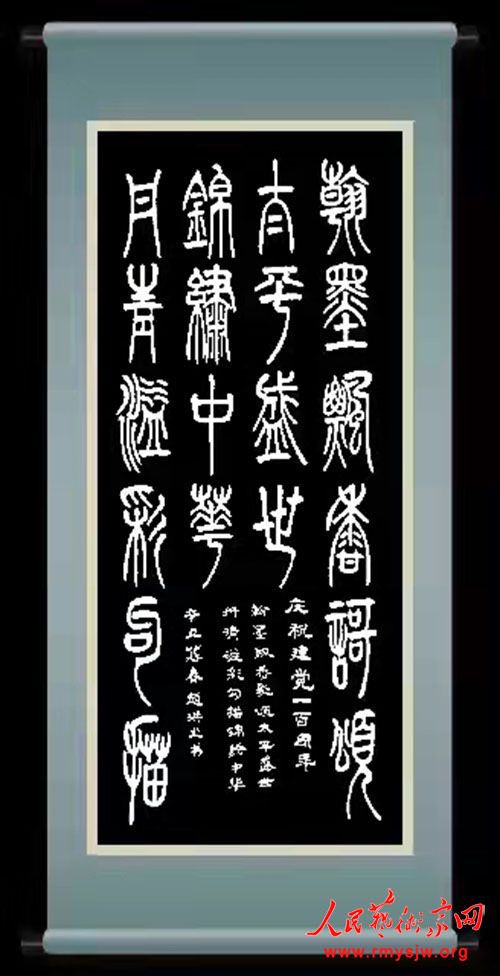 翰墨飄香謌頌
太平盛世
丹青溢彩勾描
錦繡中華
庆祝建党一百周年
翰墨飘香歌颂太平盛世
丹青溢彩勾描锦绣中华
辛丑暮春赵洪书
人民藝術家网
www.rmysjw.org